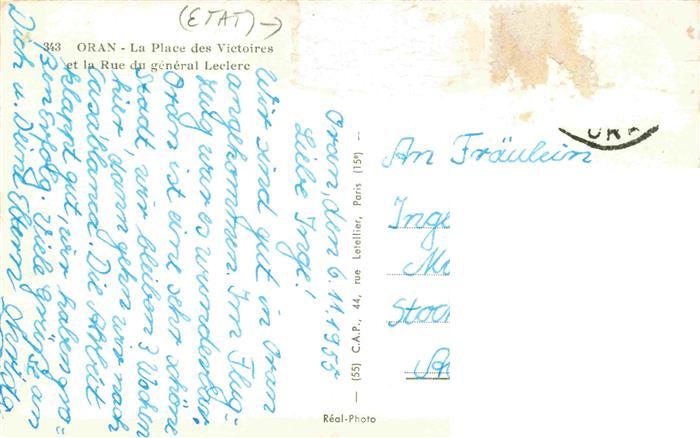 (ETAT)→
343 ORAN - La Place des Victoires
et la Rue du général Leclerc
Oran, den 6.11.1955
Liebe Inge!
Wir sind gut in Oran
angekommen. Im Flug-
zeug war es wunderbar.
Oran ist eine sehr schöne
Stadt, wir bleiben 3 Wochen
hier, dann gehn wir nach
Casablanca. Die Arbeit
klappt gut, wir haben gro=
ßen Erfolg. Viele Grüße an
Dich u. Deine Eltern
— (55) C.A.P., 44, rue Letellier, Paris (15e) —
Réal-Photo
ORA
An Fräulein
Inge
Stoc